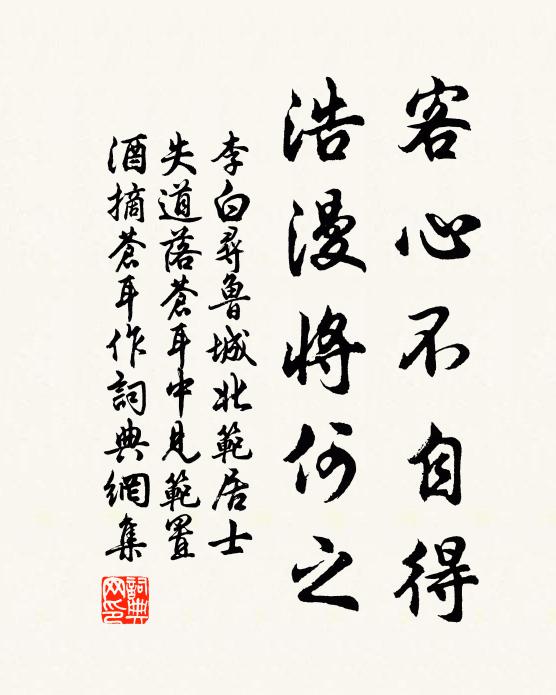 客心不自得
浩漫將何之
李白尋魯城北範居士
失道落蒼耳中見範置
酒摘蒼耳作詞典網集
詞典
网印